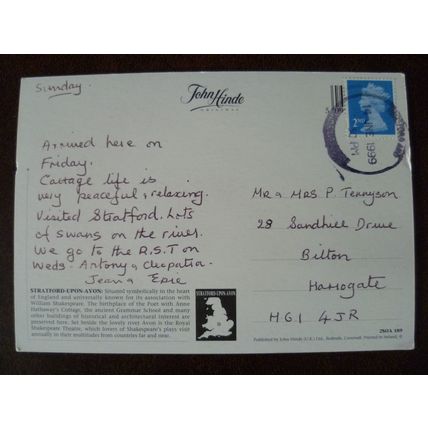 Sunday.
John Hinde
ORIGINAL
2ND
1999
PM
Arrived here on
Friday.
Cottage life is
very peaceful & relaxing.
Visited Stratford. Lots
of swans on the river.
We go to the R.S.T on
Weds. Antony & Cleopatra.
Jean & Eric
Mr & Mrs P. Tennyson
28 Sandhill Drive
Bilton
Harrogate
HG1 4JR
STRATFORD-UPON-AVON: Situated symbolically in the heart
of England and universally known for its association with
William Shakespeare. The birthplace of the Poet with Anne
Hathaway's Cottage, the ancient Grammar School and many
other buildings of historical and architectural interest are
preserved here. Set beside the lovely river Avon is the Royal
Shakespeare Theatre, which lovers of Shakespeare's plays visit
annually in their multitudes from countries far and near.
STRATFORD-UPON-AVON
2SOA 189
Published by John Hinde (U.K.) Ltd., Redruth, Cornwall. Printed in Ireland. ©